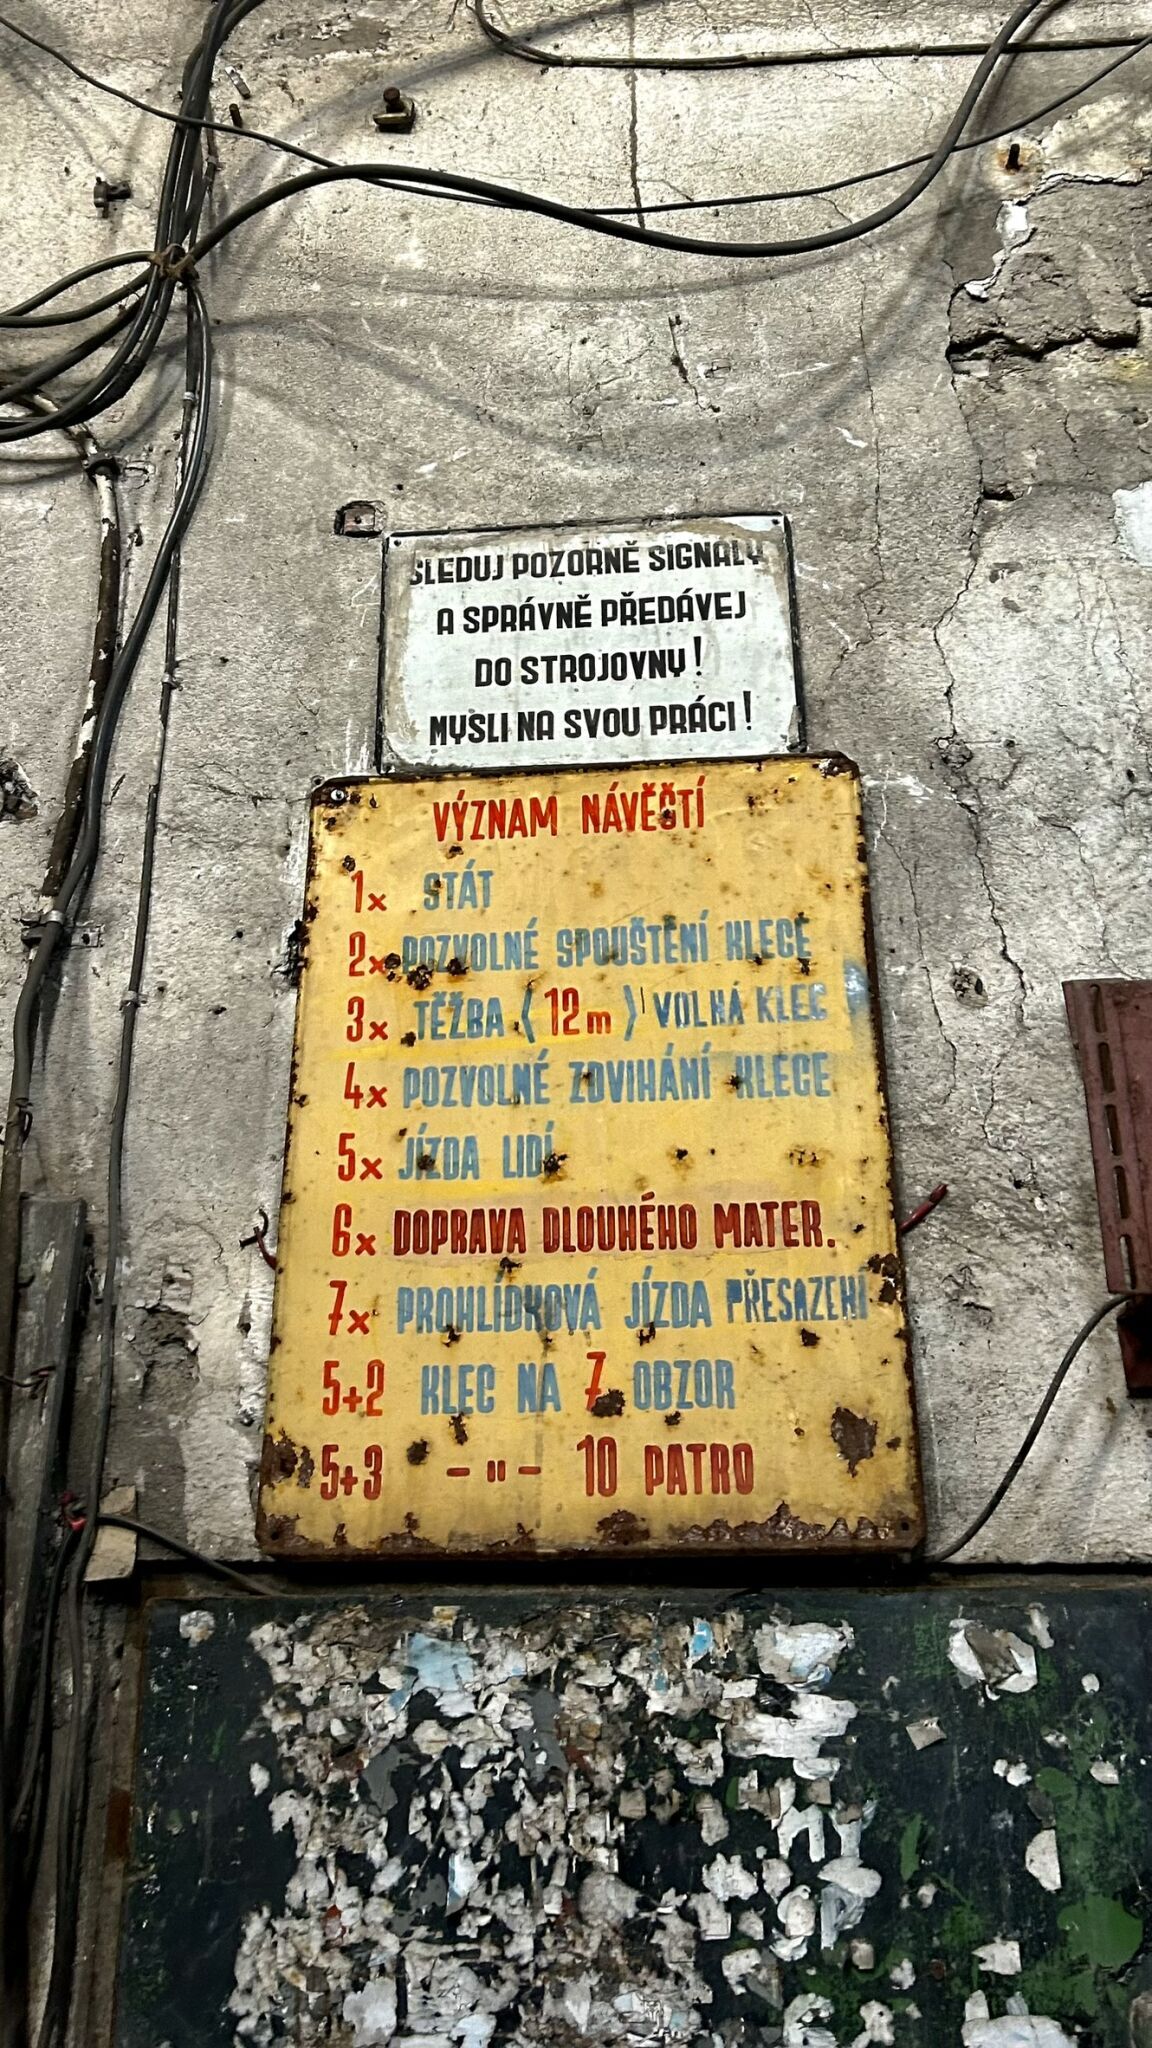 SLEDUJ POZORNĚ SIGNALY
A SPRÁVNĚ PŘEDÁVEJ
DO STROJOVNY!
MYSLI NA SVOU PRÁCI!
VÝZNAM NÁVĚŠTÍ
1x STÁT
2x POZVOLNÉ SPOUŠTĚNÍ KLECE
3x TĚŽBA (12m) VOLNÁ KLEC
4x POZVOLNÉ ZDVIHÁNÍ KLECE
5x JÍZDA LIDÍ
6x DOPRAVA DLOUHÉHO MATER.
7x PROHLÍDKOVÁ JÍZDA PŘESAZENÍ
5+2 KLEC NA 7 OBZOR
5+3 -"- 10 PATRO